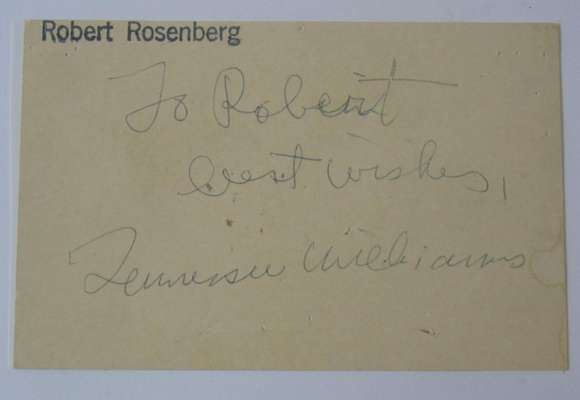 Robert Rosenberg
To Robert
best wishes,
Tennessee Williams